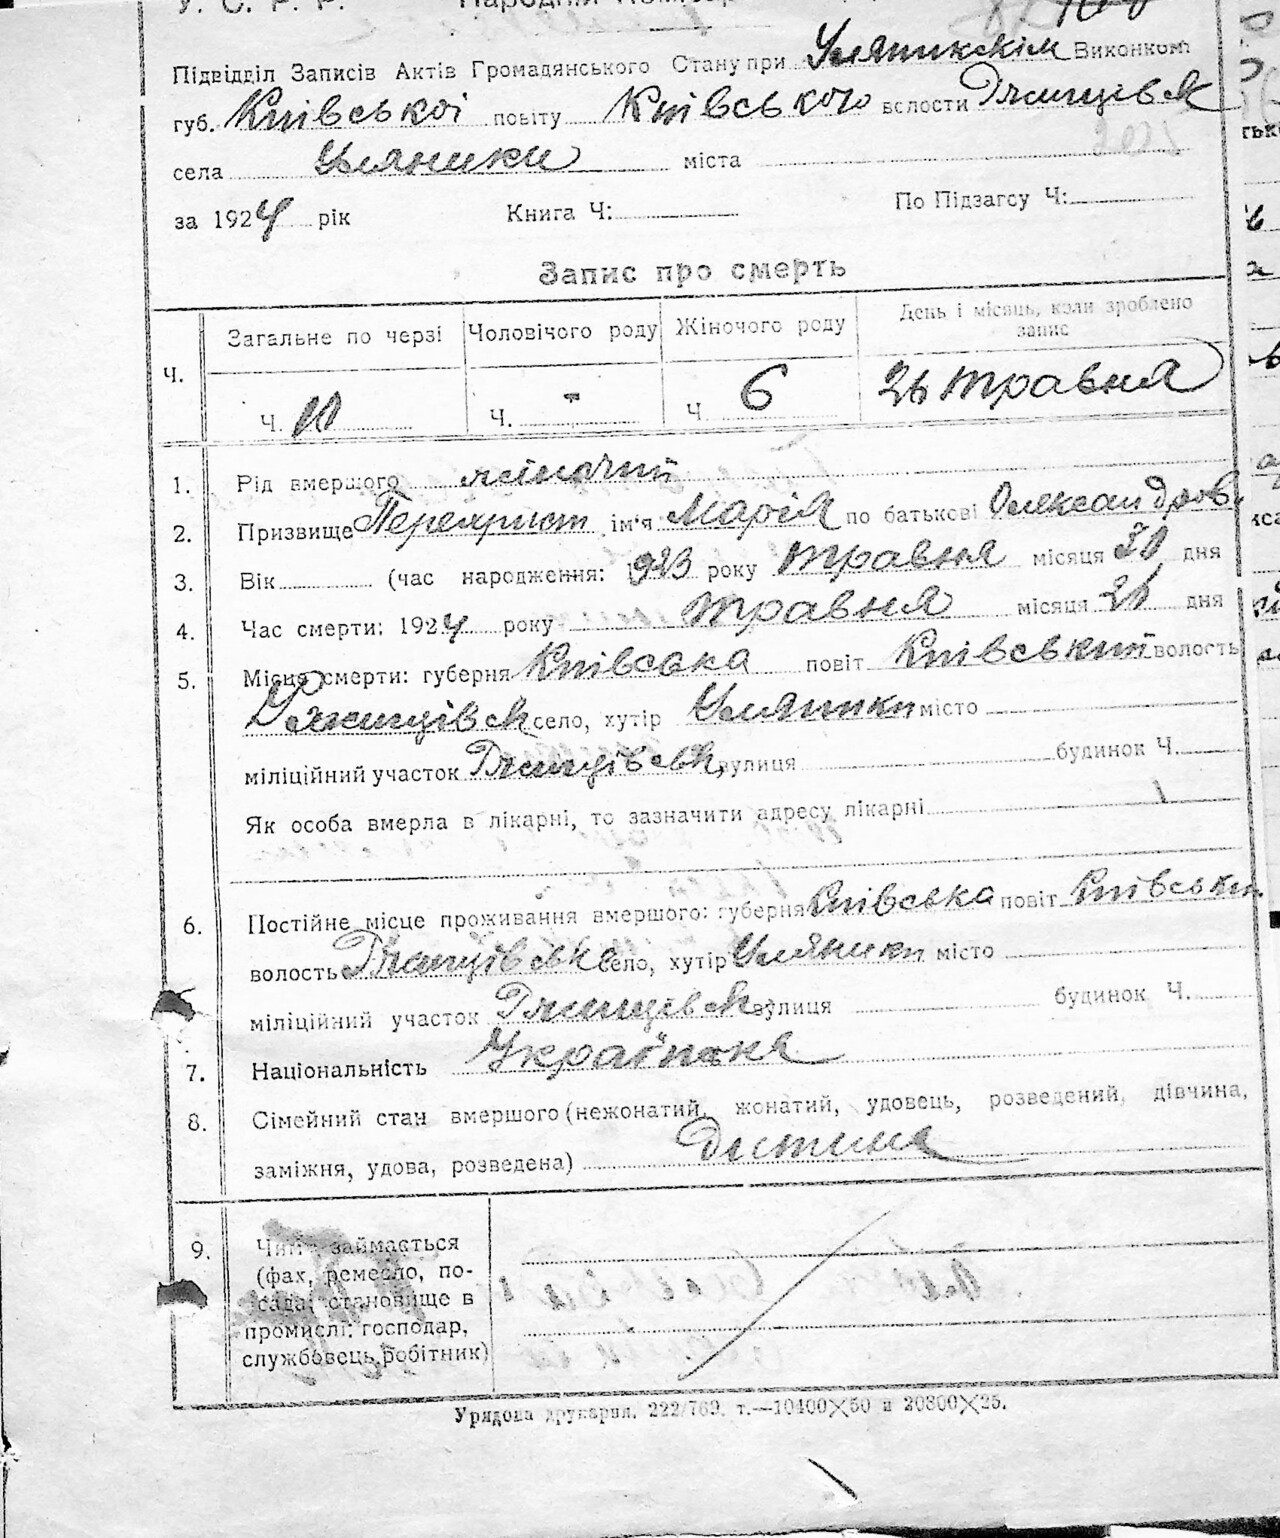 У. С. Р. Р. Народній
Підвідділ Записів Актів Громадянського Стану при Уляникскім Виконкомі
губ. Київської повіту Київського волости Ржищівськ
села Уляники міста
за 1924 рік Книга Ч: По Підзагсу Ч:
Запис про смерть
Ч. Загальне по черзі Чоловічого роду Жіночого роду День і місяць, коли зроблено запис
Ч. Ч. - Ч 6 26 травня
1. Рід вмершого жіночий
2. Призвище Перехрист ім'я Марія по батькові Олександров.
3. Вік (час народження: 1923 року травня місяця дня
4. Час смерти: 1924 року травня місяця дня
5. Місце смерти: губерня Київська повіт Київський волость
Ржищівськ село, хутір Уляники місто
міліційний участок Ржищівськ вулиця будинок Ч.
Як особа вмерла в лікарні, то зазначити адресу лікарні
6. Постійне місце проживання вмершого: губерня Київська повіт Київськи
волость Ржищівськ село, хутір Уляники місто
міліційний участок Ржищівськ вулиця будинок Ч.
7. Національність Українка
8. Сімейний стан вмершого (нежонатий, жонатий, удовець, розведений, дівчина,
заміжня, удова, розведена) Дитина
9. Чим займається
(фах, ремесло, по-
сада; становище в
промислі: господар,
службовець, робітник)
Урядова друкарня. 222/769. т.—10400×50 и 20800×25.